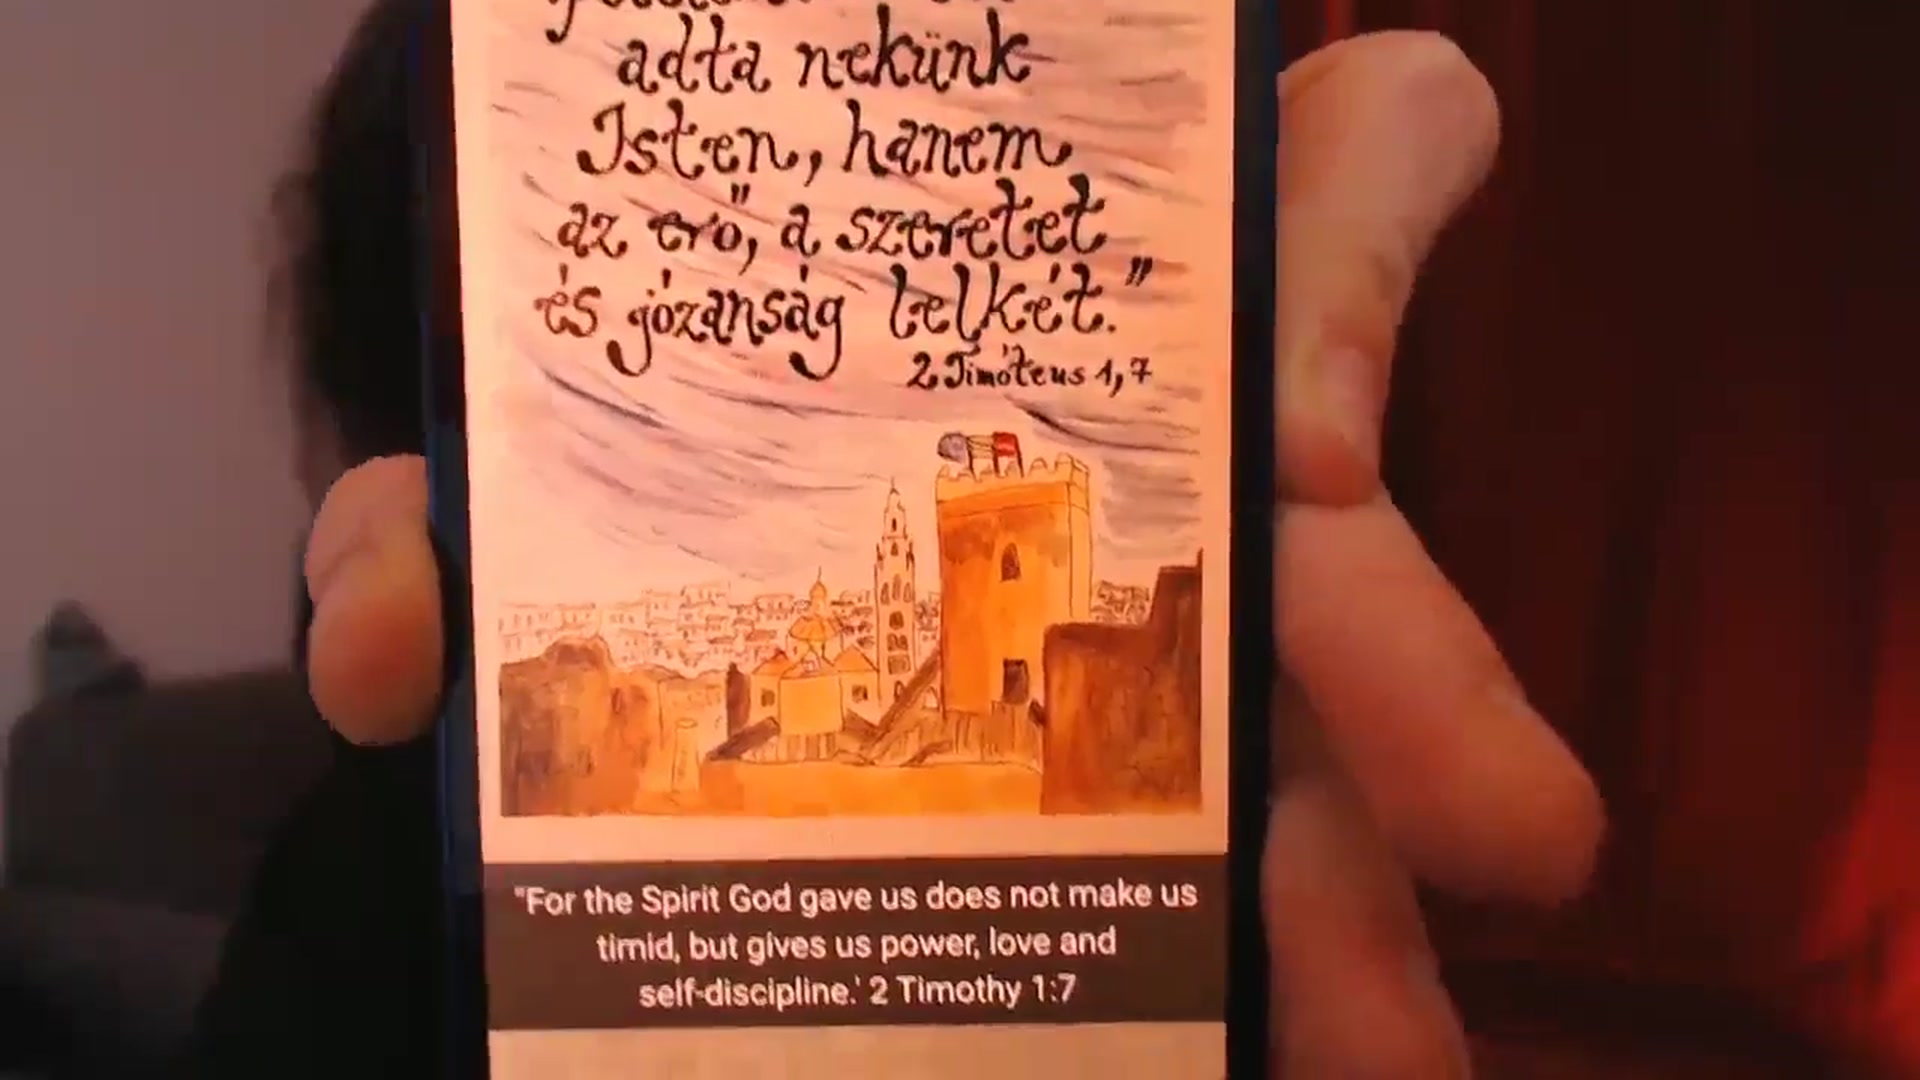 adta nekünk
Isten, hanem
az erő, a szeretet
és józanság lelkét."
2 Timóteus 1,7
"For the Spirit God gave us does not make us
timid, but gives us power, love and
self-discipline.' 2 Timothy 1:7